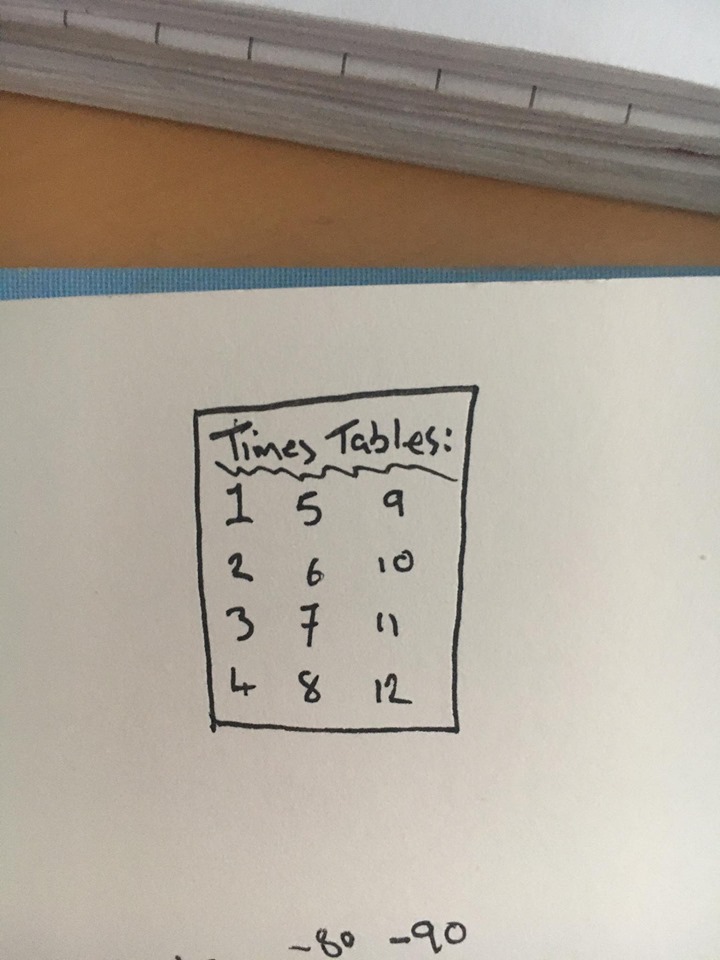 Times Tables:
1 5 9
2 6 10
3 7 11
4 8 12
-80 -90